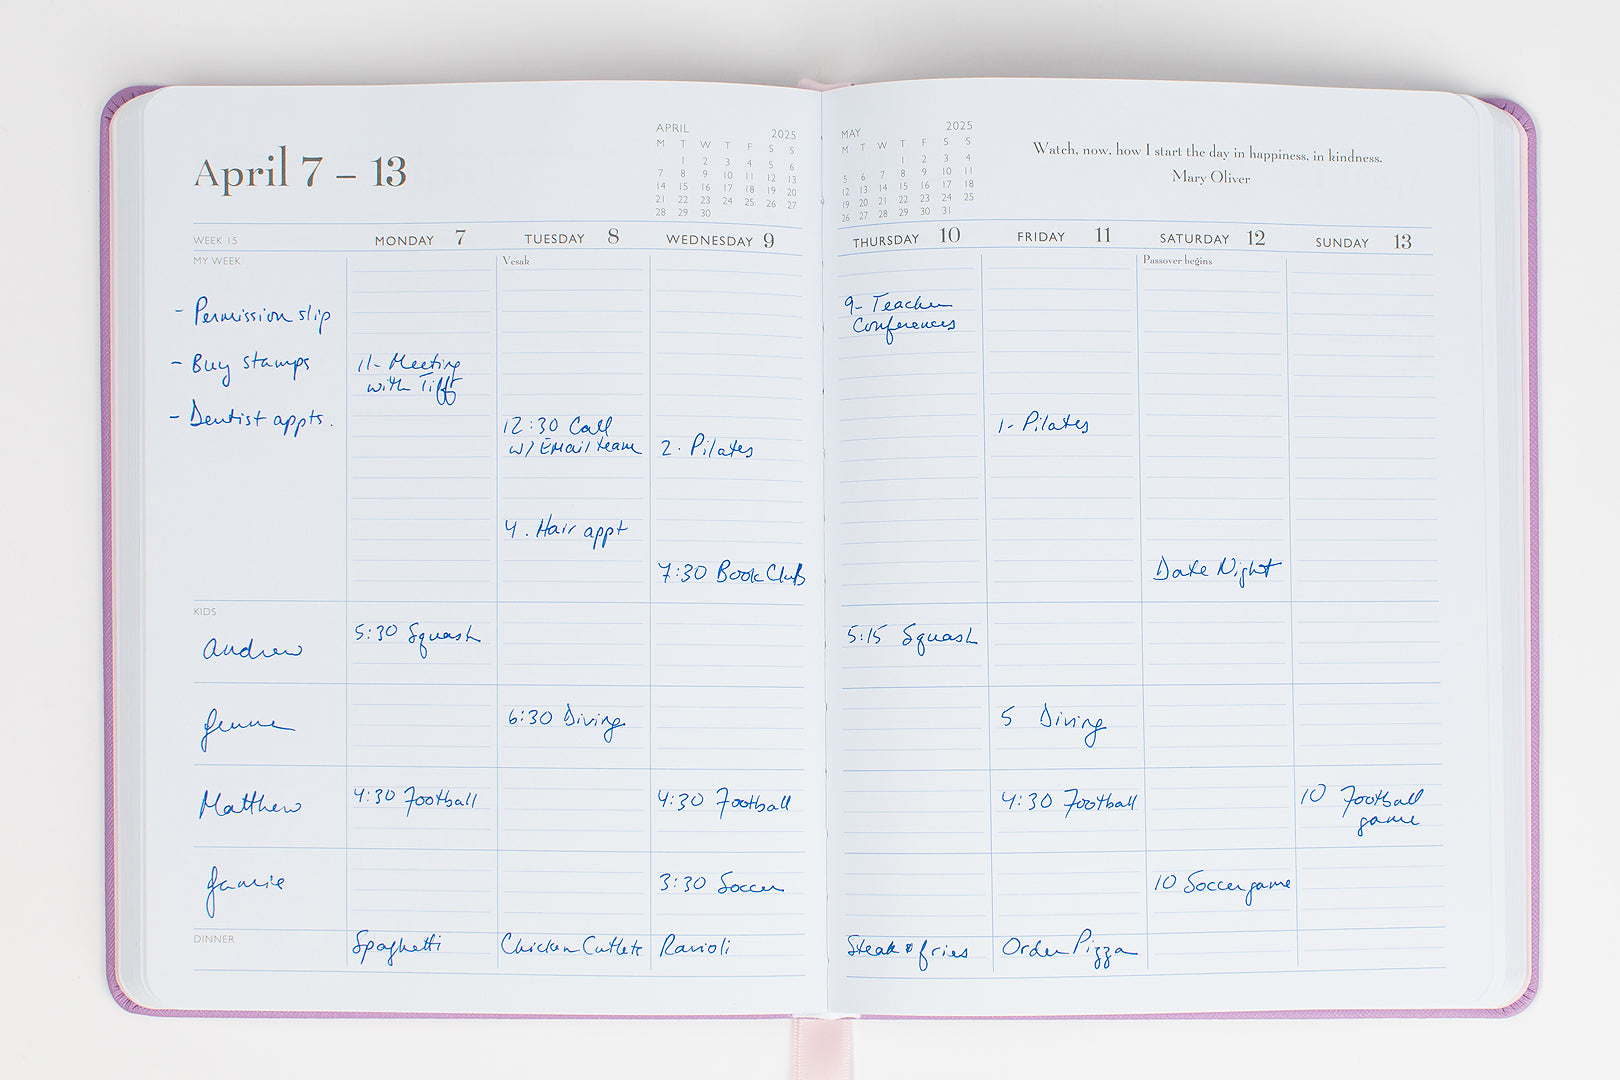 April 7 – 13
APRIL 2025
M T W T F S S
1 2 3 4 5 6
7 8 9 10 11 12 13
14 15 16 17 18 19 20
21 22 23 24 25 26 27
28 29 30
WEEK 15
MONDAY 7
TUESDAY 8
WEDNESDAY 9
MY WEEK
Vesak
- Permission slip
- Buy stamps
- Dentist appts.
11- Meeting
with Tifft
12:30 Call
w/ Email team
2. Pilates
4. Hair appt
7:30 Book Club
KIDS
Andrew
5:30 Squash
6:30 Diving
Matthew
4:30 Football
4:30 Football
Jamie
3:30 Soccer
DINNER
Spaghetti
Chicken Cutlets
Ravioli
MAY 2025
M T W T F S S
1 2 3 4
5 6 7 8 9 10 11
12 13 14 15 16 17 18
19 20 21 22 23 24 25
26 27 28 29 30 31
Watch, now, how I start the day in happiness, in kindness.
Mary Oliver
THURSDAY 10
FRIDAY 11
SATURDAY 12
SUNDAY 13
Passover begins
9- Teacher
Conferences
1- Pilates
Date Night
5:15 Squash
5 Diving
4:30 Football
10 Football
game
10 Soccer game
Steak & fries
Order Pizza